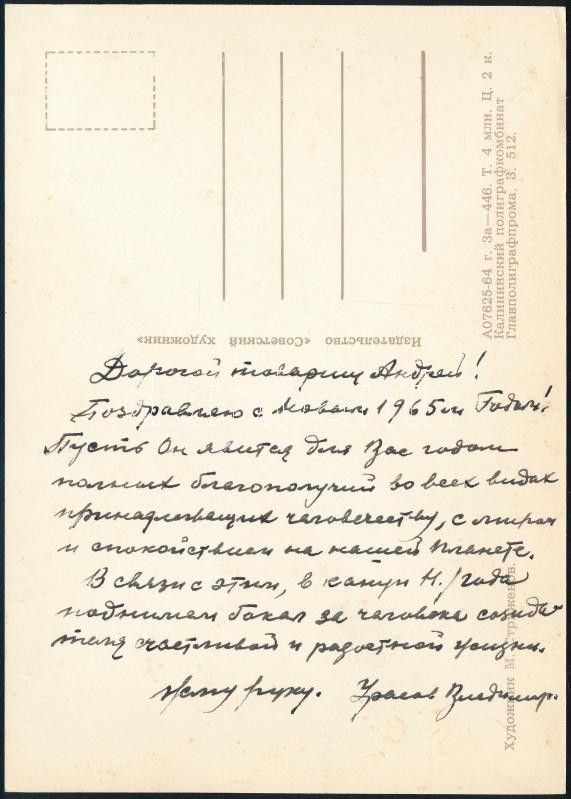 А07625-64 г. За—446. Т. 4 млн. Ц. 2 к.
Калининский полиграфкомбинат
Главполиграфпрома. З. 512.
Издательство «Советский художник»
Дорогой товарищ Андрей!
Поздравляю с Новым 1965м Годом!
Пусть Он явится для Вас годом
полных благополучий во всех видах
принадлежащих человечеству, с миром
и спокойствием на нашей планете.
В связи с этим, в канун Н./года
поднимем бокал за человека созида-
теля счастливой и радостной жизни.
Жму руку. Владимир.
Художник М. Стриженов.